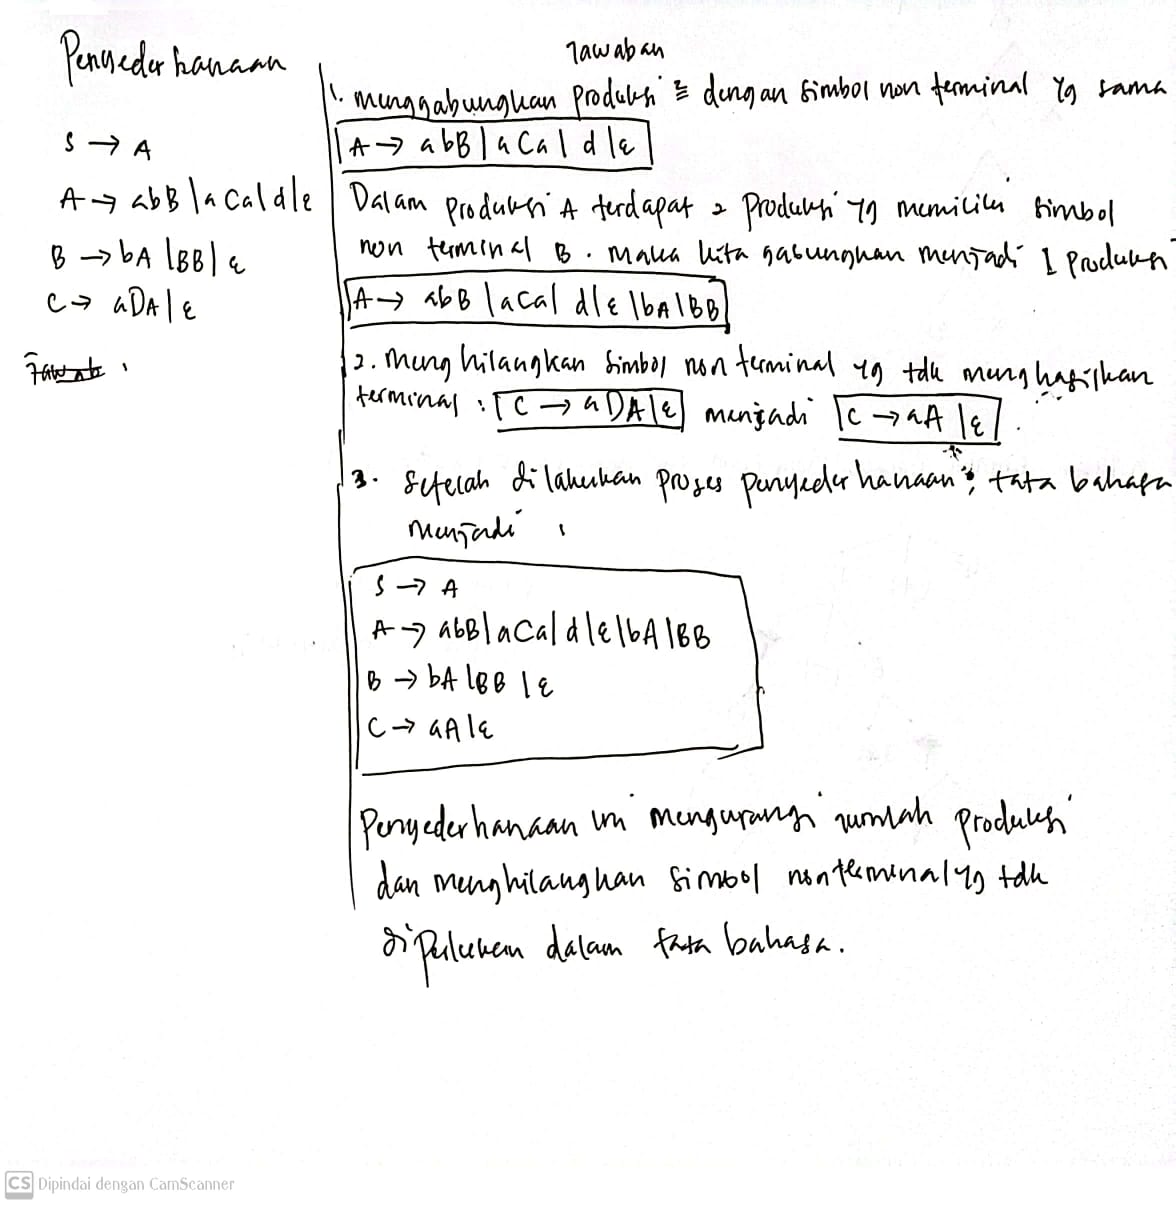 Penyederhanaan
S → A
A → abB | aCa | d | ε
B → bA | BB | ε
C → aDA | ε
Jawab :
Jawaban
1. Menggabungkan Produksi dengan simbol non terminal yg sama
A → abB | aCa | d | ε
Dalam Produksi A terdapat 2 Produksi yg memiliki simbol
non terminal B. Maka kita gabungkan menjadi 1 Produksi
A → abB | aCa | d | ε | bA | BB
2. Menghilangkan simbol non terminal yg tdk menghasilkan
terminal : C → aDA | ε menjadi C → aA | ε .
3. Setelah dilakukan proses penyederhanaan, tata bahasa
menjadi :
S → A
A → abB | aCa | d | ε | bA | BB
B → bA | BB | ε
C → aA | ε
Penyederhanaan ini mengurangi jumlah produksi
dan menghilangkan simbol nonterminal yg tdk
diperlukan dalam tata bahasa.
CS Dipindai dengan CamScanner